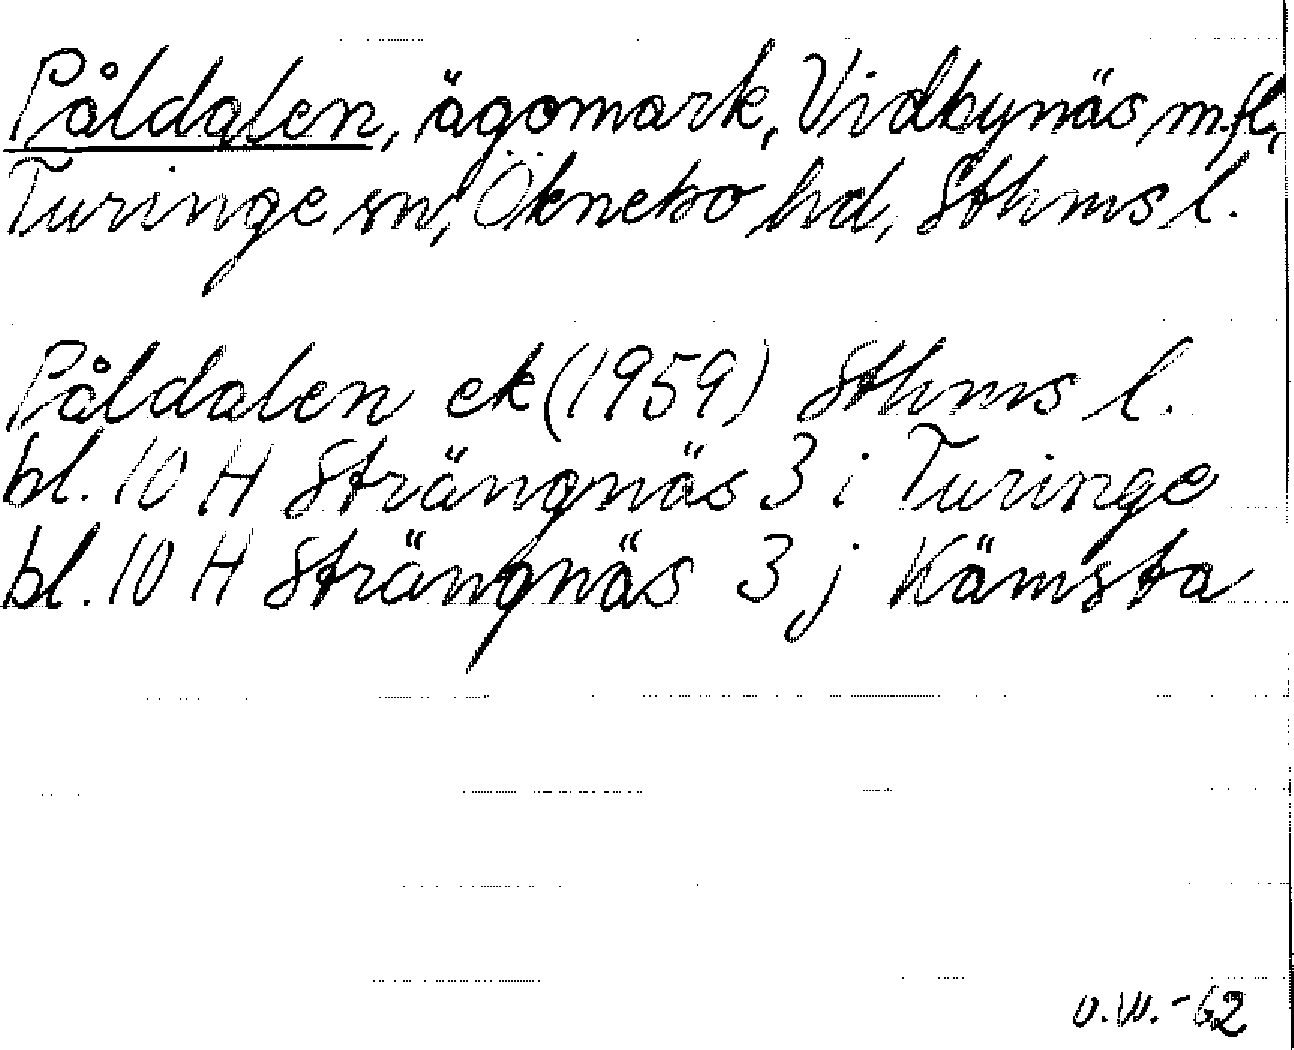 Påldalen, ägomark, Vidbynäs m.fl.,
Turinge sn, Öknebo hd, Sthms l.
Påldalen ek (1959) Sthms l.
bl. 10 H Strängnäs 3 i Turinge
bl. 10 H Strängnäs 3 j Kämsta
O.W. -62